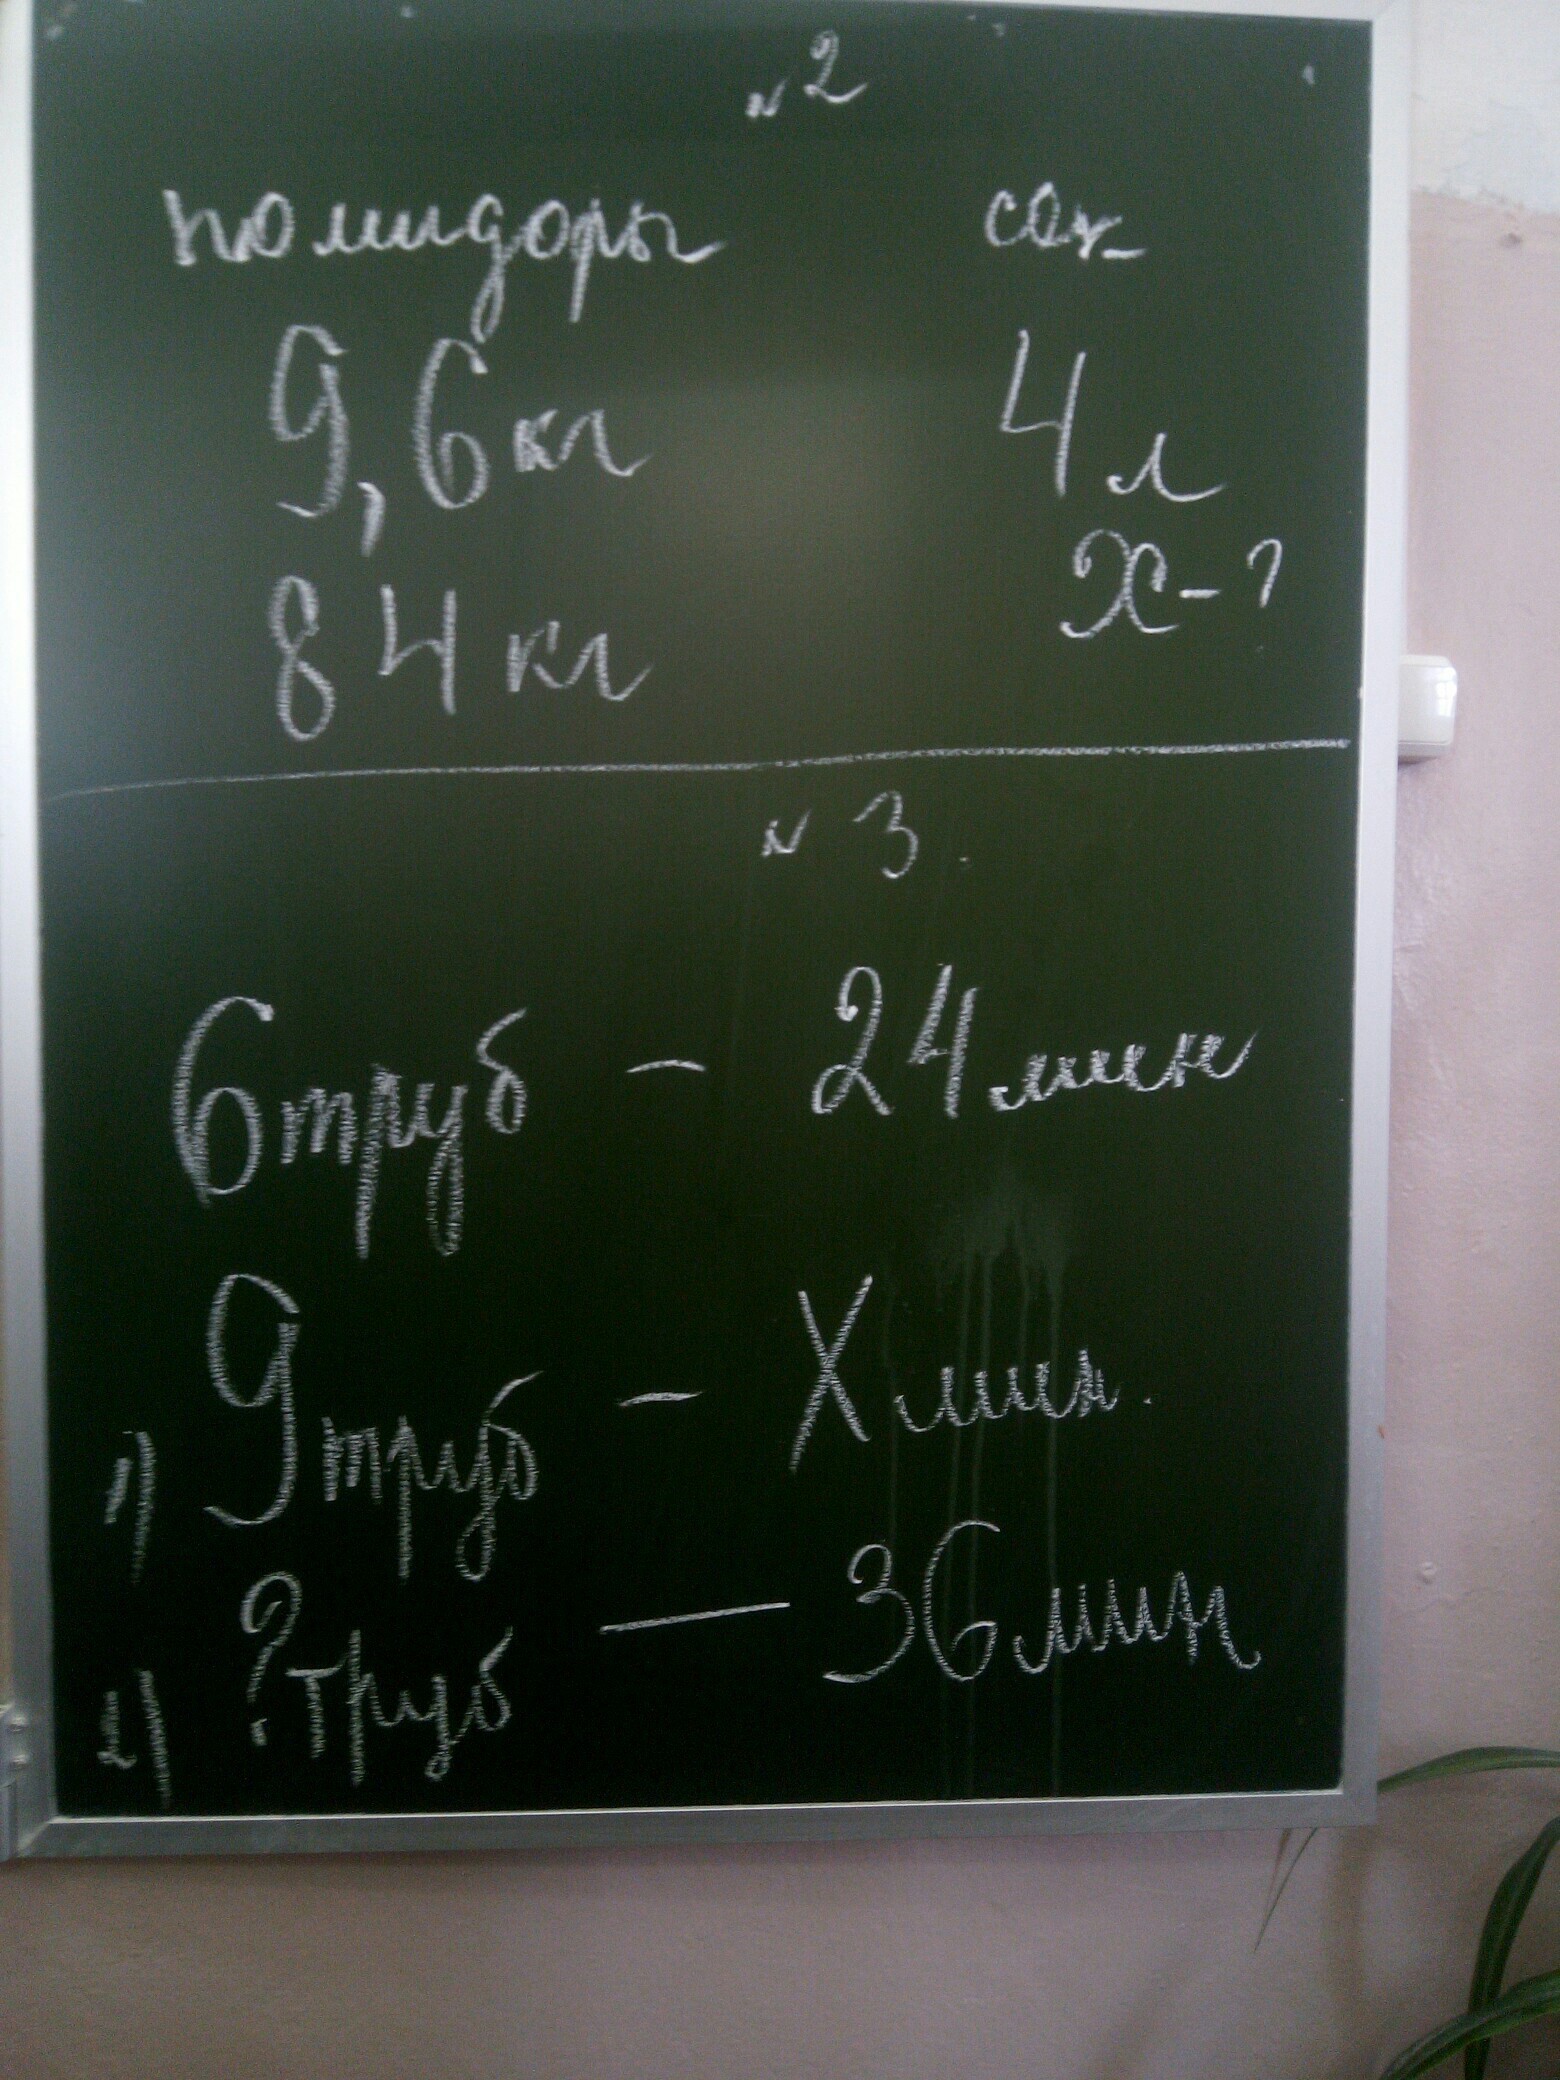 №2
помидоры сок
9,6 кг 4 л
84 кг х-?
№3.
6 труб - 24 мин
1) 9 труб - х мин.
2) ? труб — 36 мин